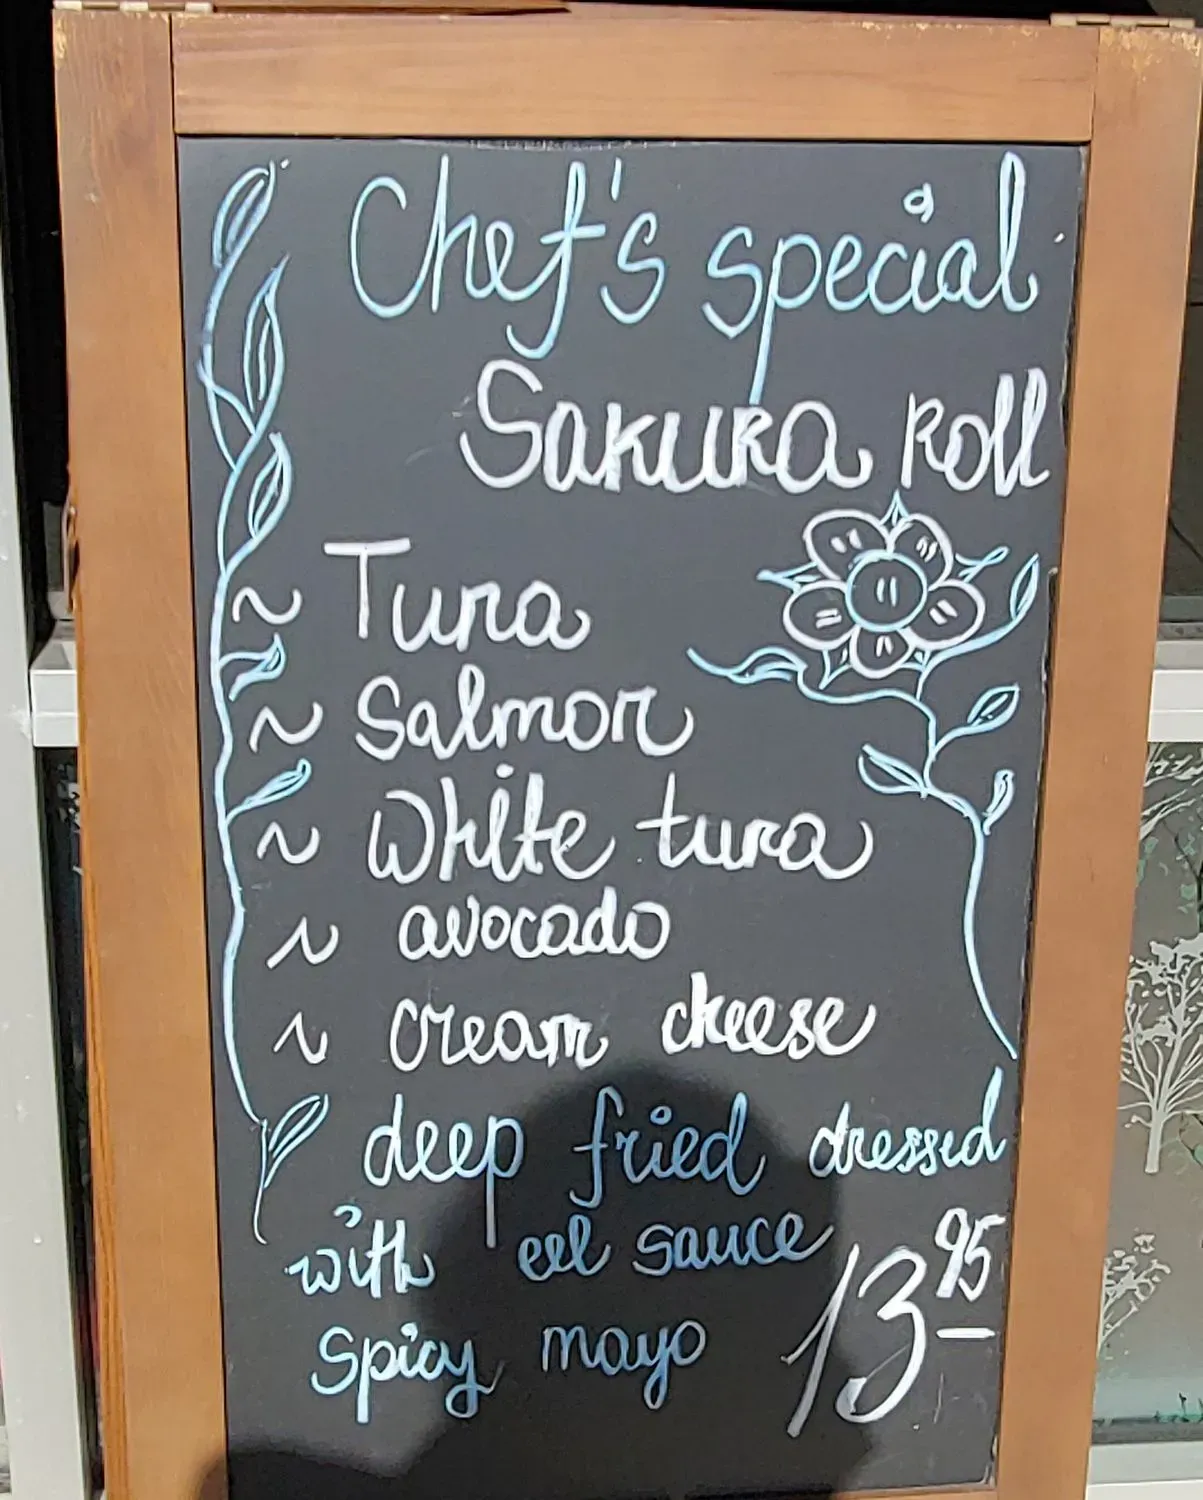 Chef's special
Sakura Roll
~ Tuna
~ Salmon
~ White tuna
~ avocado
~ cream cheese
deep fried dressed
with eel sauce
spicy mayo 13 95